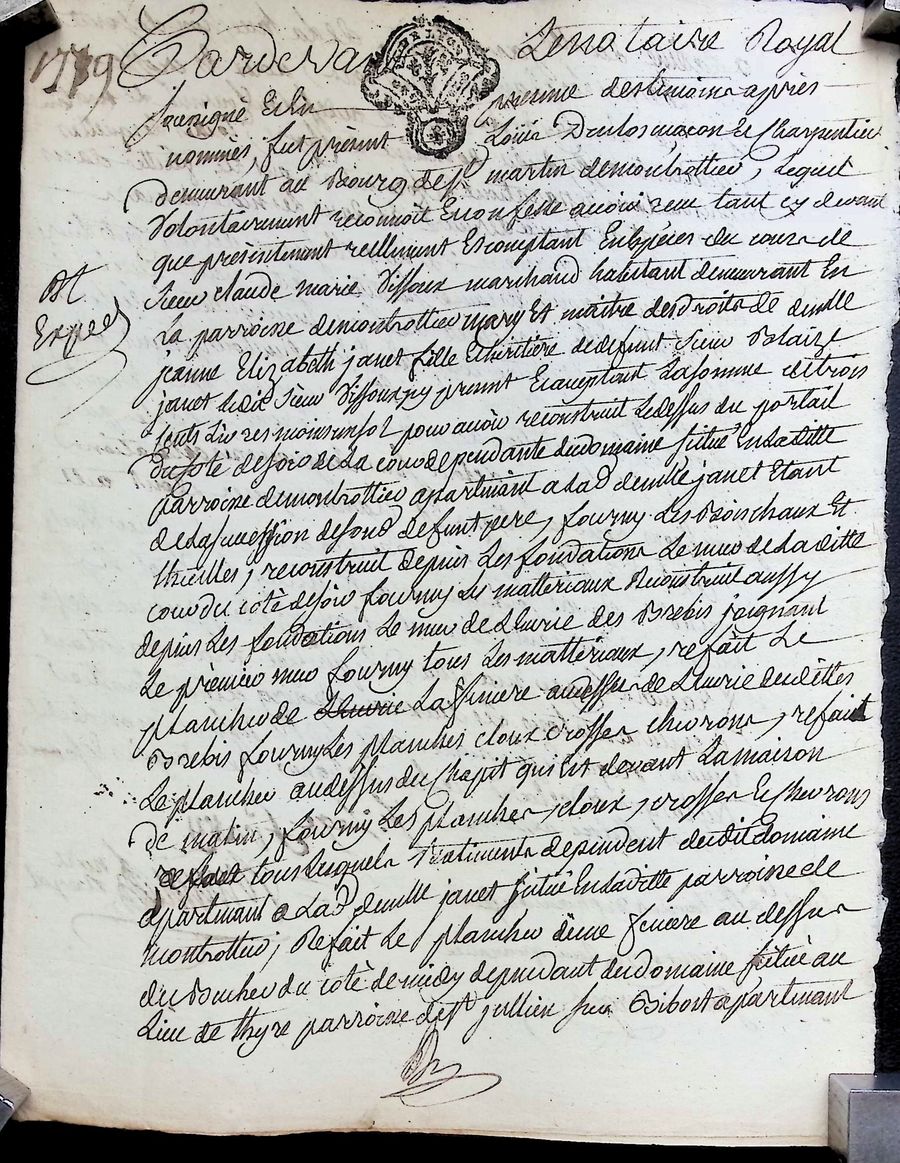 1779 Pardevant Le notaire Royal
soussigné Et En presence des temoins apres
nommés, fut présent Louis Duclos maçon Et Charpentier
demeurant au Bourg de St martin de montrottier, Lequel
Volontairement reconnoit Et confesse avoir reçu tant cy devant
que présentement reellement Et comptant En Espéces du cours de
Sieur claude marie Vissoux marchand habitant demeurant En
La parroisse de montrottier mary Et maitre des droits de demlle
jeanne Elizabeth janet fille Et héritière de defunt Sieur Blaize
janet Ledit Sieur Vissoux cy present Et acceptant La somme de trois
cents Livres moins un sol pour avoir reconstruit Le dessus du portail
du coté de soir de La cour dependante du domaine situé En La ditte
parroisse de montrottier apartenant a Lad demlle janet Etant
de La succession de son d defunt pere, fourny Les Bois chaux Et
thuilles, reconstruit depuis Les fondations Le mur de La ditte
cour du coté de soir fourny Les matteriaux Reconstruit aussy
depuis Les fondations Le mur de L'Ecurie des Brebis joignant
Le prémier mur fourny tous Les mattériaux, refait Le
plancher de L'Ecurie La feniere au dessus de L'Ecurie des dittes
Brebis fourny Les planches cloux crosses chevrons, refait
Le plancher au dessus du Chapit qui Est devant La maison
de matin, fourny Les planches, cloux, crosses Et chevrons
tous Lesquels Batiments dependent dudit domaine
apartenant a Lad demlle janet situé En La ditte parroisse de
montrottier, Refait Le plancher d'une feniere au dessus
du Bucher du coté de midy dependant du domaine situé au
Lieu de thyre parroisse de St jullien sur Bibost apartenant
Bt
Exped